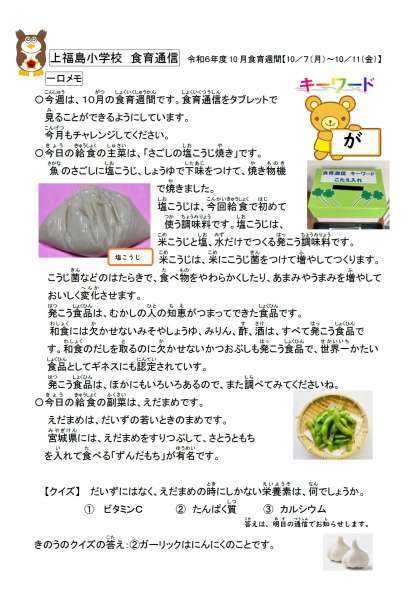 上福島小学校 食育通信 令和6年度10月食育週間【10／7（月）～10／11（金）】
一口メモ
キーワード
が
食育通信 キーワード
こたえ入れ
○今週は、10月の食育週間です。食育通信をタブレットで
見ることができるようにしています。
今月もチャレンジしてください。
○今日の給食の主菜は、「さごしの塩こうじ焼き」です。
魚のさごしに塩こうじ、しょうゆで下味をつけて、焼き物機
で焼きました。
塩こうじは、今回給食で初めて
使う調味料です。塩こうじは、
米こうじと塩、水だけでつくる発こう調味料です。
塩こうじ
米こうじは、米にこうじ菌をつけて増やしてつくります。
こうじ菌などのはたらきで、食べ物をやわらかくしたり、あまみやうまみを増やして
おいしく変化させます。
発こう食品は、むかしの人の知恵がつまってできた食品です。
和食には欠かせないみそやしょうゆ、みりん、酢、酒は、すべて発こう食品で
す。和食のだしを取るのに欠かせないかつおぶしも発こう食品で、世界一かたい
食品としてギネスにも認定されています。
発こう食品は、ほかにもいろいろあるので、また調べてみてくださいね。
○今日の給食の副菜は、えだまめです。
えだまめは、だいずの若いときのまめです。
宮城県には、えだまめをすりつぶして、さとうともち
を入れて食べる「ずんだもち」が有名です。
【クイズ】 だいずにはなく、えだまめの時にしかない栄養素は、何でしょうか。
① ビタミンC ② たんぱく質 ③ カルシウム
答えは、明日の通信でお知らせします。
きのうのクイズの答え：②ガーリックはにんにくのことです。